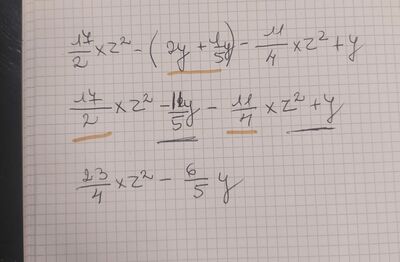 17/2 xz² - (2y + 1/5 y) - 11/4 xz² + y
17/2 xz² - 11/5 y - 11/4 xz² + y
23/4 xz² - 6/5 y